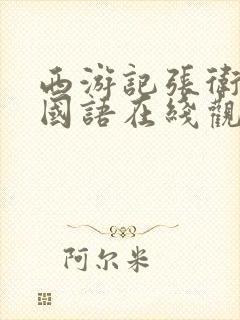 西游記張衛
國語在綫觀
阿尔米